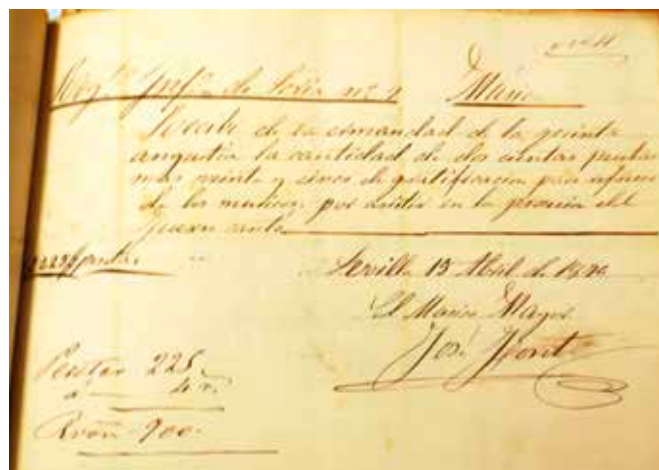 nº 4
Regto Infa de Soria nº 9 Música
Recibí de la ermandad de la quinta
angustia la cantidad de dos cientas pesetas
mas veinte y cinco de gratificacion para
de los musicos por asistir en la procesion del
jueves santo
Pesetas
Sevilla 15 Abril de
El Musico Mayor
José Font
Pesetas 225
a 4 r.
Rvon 900